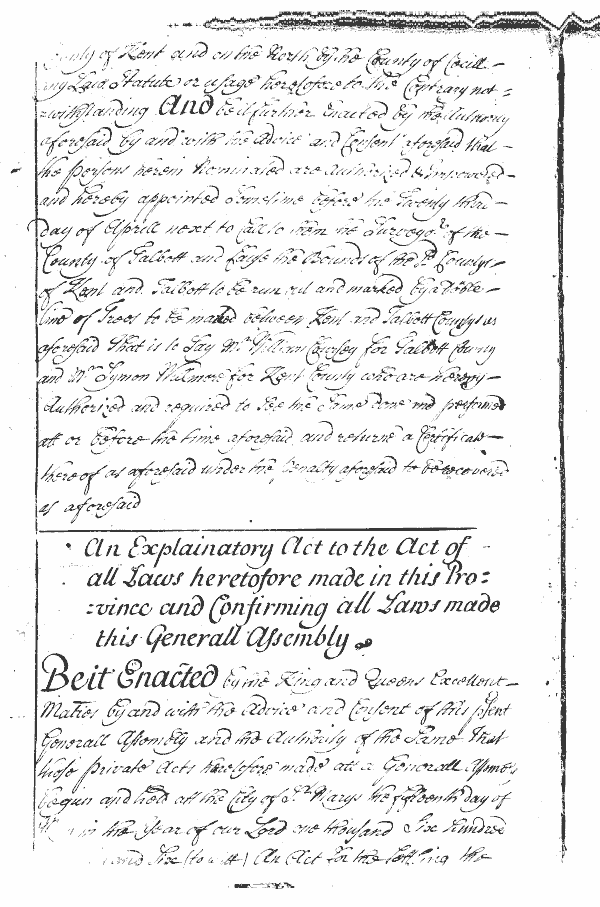 County of Kent and on the North by the County of Cecill
any Law Statute or usage heretofore to the Contrary not =
= withstanding And be it further Enacted by the Authority
aforesaid by and with the Advice and Consent aforesaid that
the Persons herein Nominated are Authorized & impowered
and hereby appointed Sometime before the Twenty third
day of Aprill next to Call to them the Surveyor of the
County of Talbott and Cause the Bounds of the sd Countys
of Kent and Talbott to be run out and marked by a Double
line of Trees to be marked between Kent and Talbott Countys as
aforesaid That is to Say Mr William Coursey for Talbott County
and Mr Symon Wilmore for Kent County who are hereby
Authorized and required to See the Same done and performed
att or before the time aforesaid and returne a Certificate
thereof as aforesaid under the Penalty aforesaid to be recovered
as aforesaid
An Explainatory Act to the Act of
all Laws heretofore made in this Pro=
=vince and Confirming all Laws made
this Generall Assembly
Be it Enacted by the King and Queens Excellent
Maties by and with the Advice and Consent of this psent
Generall Assembly and the Authority of the Same That
those Private Acts heretofore made att a Generall Assembly
begun and held att the City of St Marys the fifteenth day of
in the Year of our Lord one thousand Six hundred
and Six (to witt) An Act for the Settling the